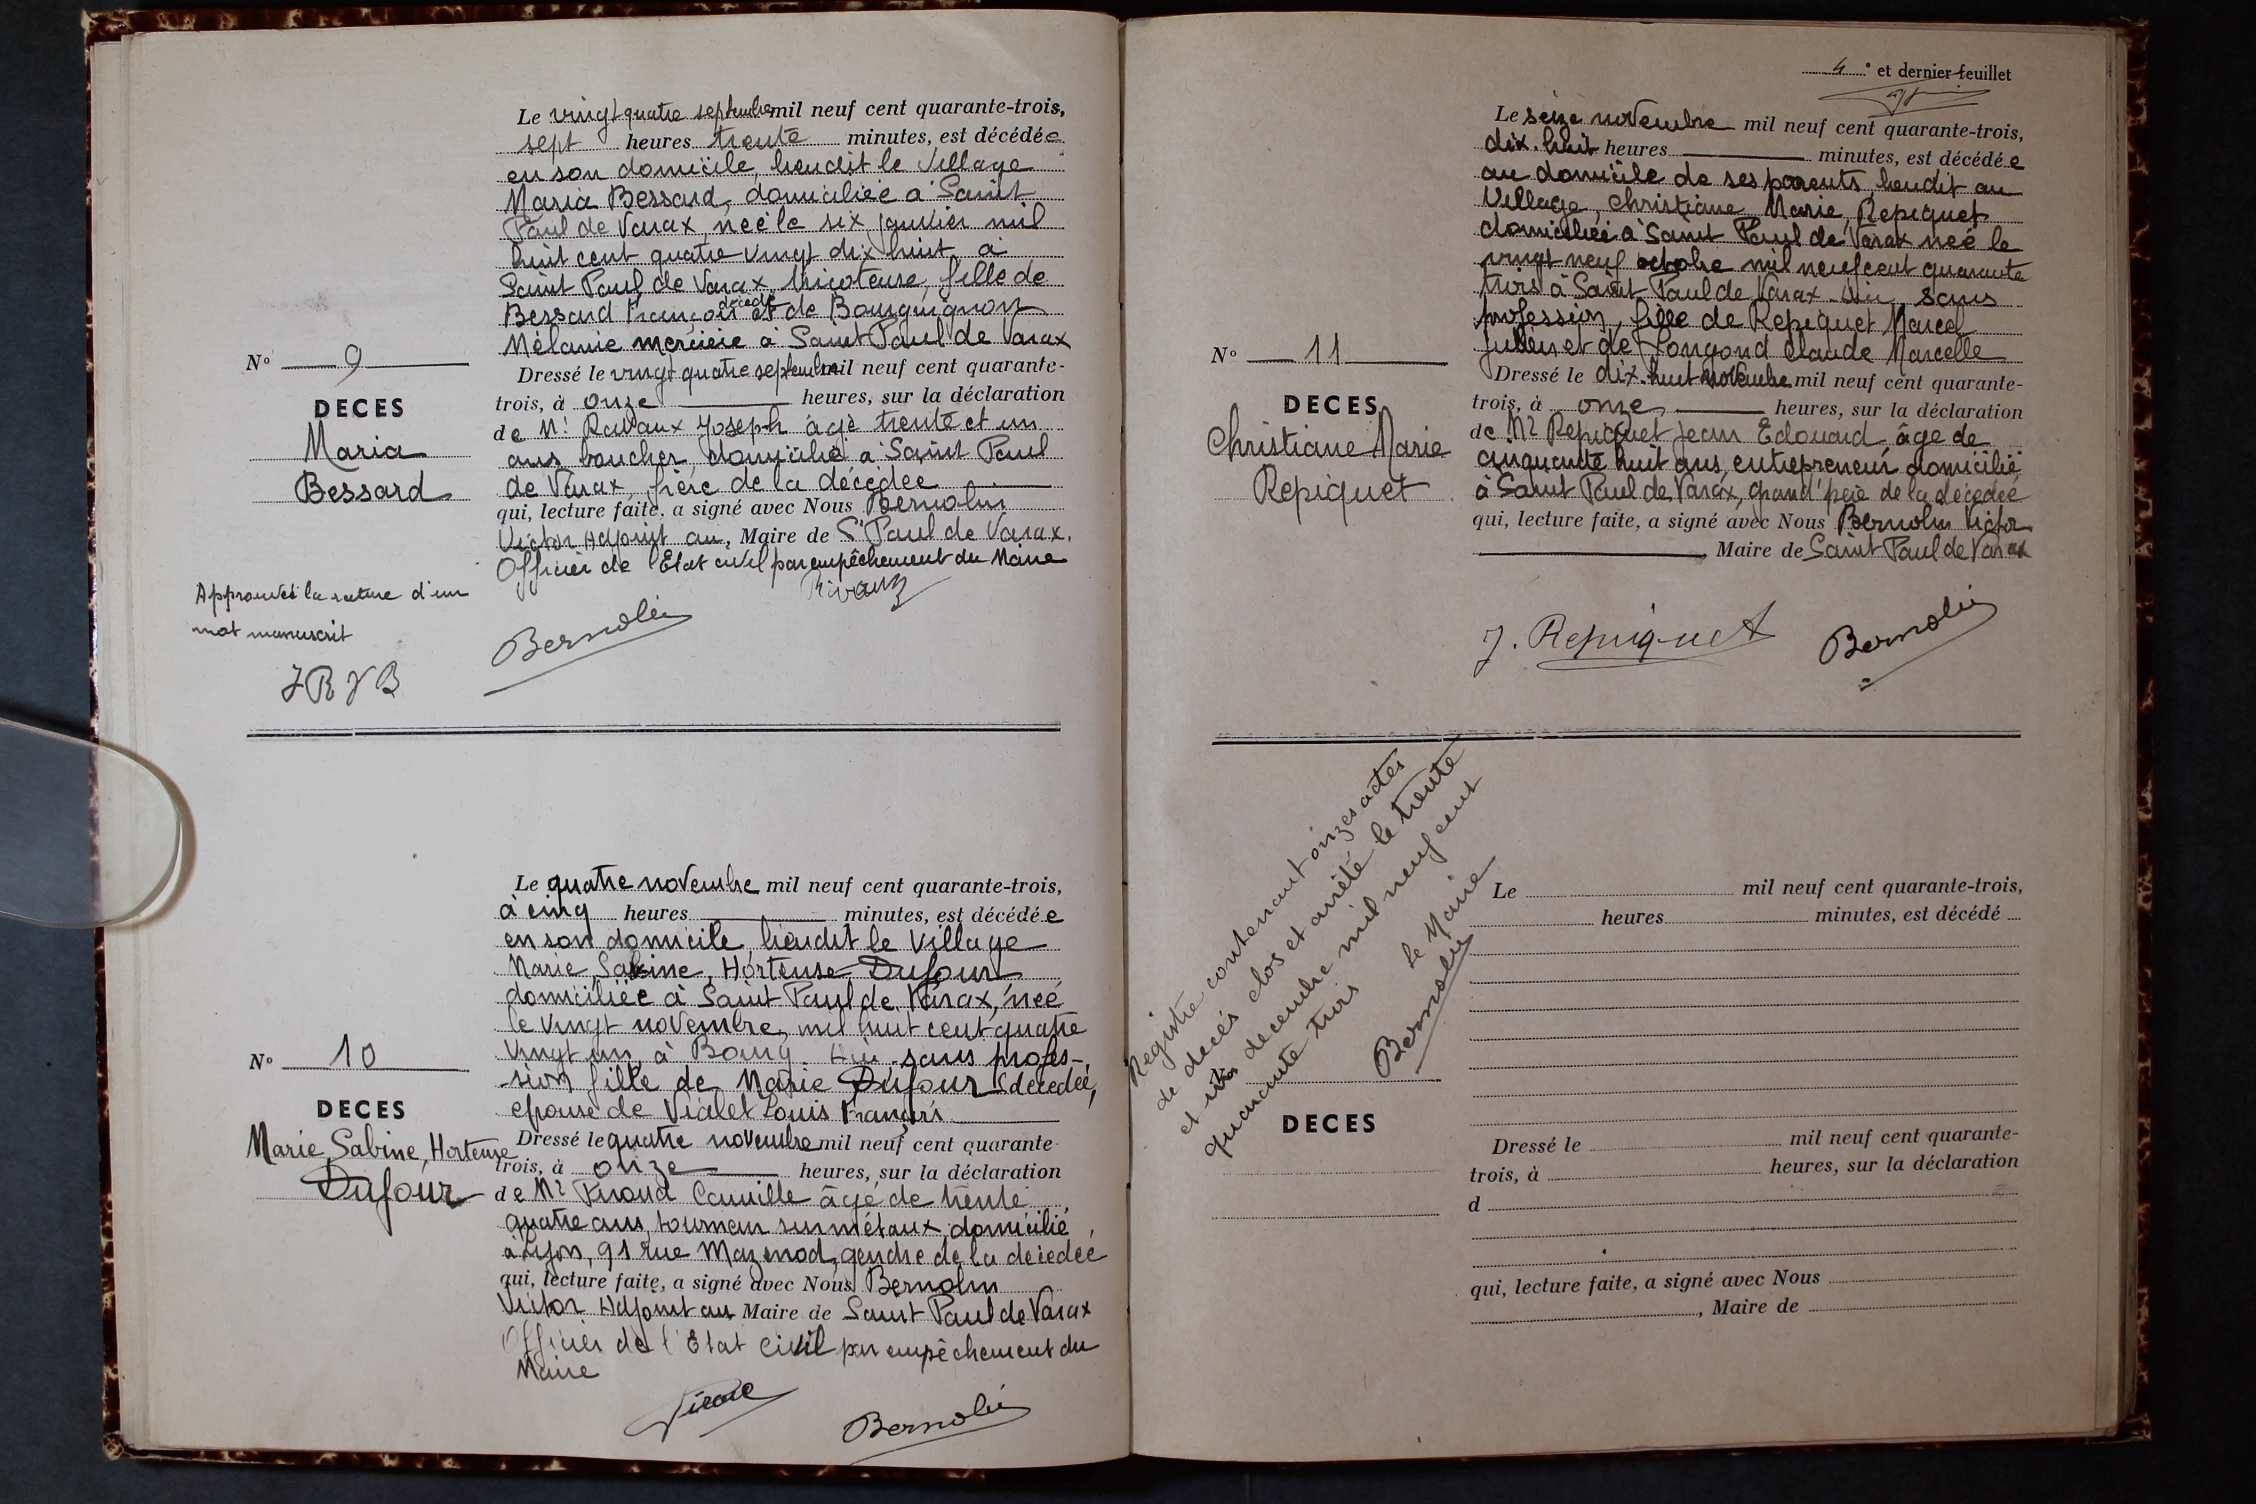 Le vingt quatre septembre mil neuf cent quarante-trois,
sept heures trente minutes, est décédée
en son domicile, lieudit le Village
Maria Bessard, domiciliée à Saint
Paul de Varax, née le six janvier mil
huit cent quatre vingt dix huit à
Saint Paul de Varax, tricoteuse, fille de
Bessard François décédé et de Bourguignon
Mélanie mercière à Saint Paul de Varax
Dressé le vingt quatre septembre mil neuf cent quarante-
trois, à onze heures, sur la déclaration
de Mr Joseph âgé trente et un
ans boucher, domicilié à Saint Paul
de Varax, frère de la décédée
qui, lecture faite, a signé avec Nous Bernolin
Victor Adjoint au, Maire de St Paul de Varax.
Officier de l'Etat civil par empêchement du Maire
Bernolin
N° 9
DECES
Maria
Bessard
la rature d'un
mot manuscrit
Le quatre novembre mil neuf cent quarante-trois,
à cinq heures minutes, est décédée
en son domicile, lieudit le Village
Marie, Sabine, Hortense Dufour
domiciliée à Saint Paul de Varax, née
le vingt novembre mil huit cent quatre
vingt un à Bourg Ain sans profes-
sion fille de Marie Dufour décédée,
épouse de Vialet Louis François
Dressé le quatre novembre mil neuf cent quarante-
trois, à onze heures, sur la déclaration
de Mr Camille âgé de trente
quatre ans, tourneur sur métaux domicilié
à Lyon, 91 rue Mazenod, gendre de la décédée
qui, lecture faite, a signé avec Nous Bernolin
Victor Adjoint au Maire de Saint Paul de Varax
Officier de l'Etat Civil par empêchement du
Maire
Bernolin
N° 10
DECES
Marie, Sabine, Hortense
Dufour
4e et dernier feuillet
Le seize novembre mil neuf cent quarante-trois,
dix-huit heures minutes, est décédée
au domicile de ses parents, lieudit au
Village, Christiane Marie, Repiquet
domiciliée à Saint Paul de Varax née le
vingt neuf octobre mil neuf cent quarante
trois à Saint Paul de Varax Ain, sans
profession, fille de Repiquet Marcel
Julien et de Longond Claude Marcelle
Dressé le dix-huit novembre mil neuf cent quarante-
trois, à onze heures, sur la déclaration
de Mr Repiquet Jean Edouard âgé de
cinquante huit ans, entrepreneur domicilié
à Saint Paul de Varax, grand'père de la décédée
qui, lecture faite, a signé avec Nous Bernolin Victor
, Maire de Saint Paul de Varax
J. Repiquet Bernolin
N° 11
DECES
Christiane Marie
Repiquet
Registre contenant onzes actes
de décès clos et arrêté le trente
et un décembre mil neuf cent
quarante trois le Maire
Bernolin
DECES
Le mil neuf cent quarante-trois,
heures minutes, est décédé
Dressé le mil neuf cent quarante-
trois, à heures, sur la déclaration
d
qui, lecture faite, a signé avec Nous
, Maire de